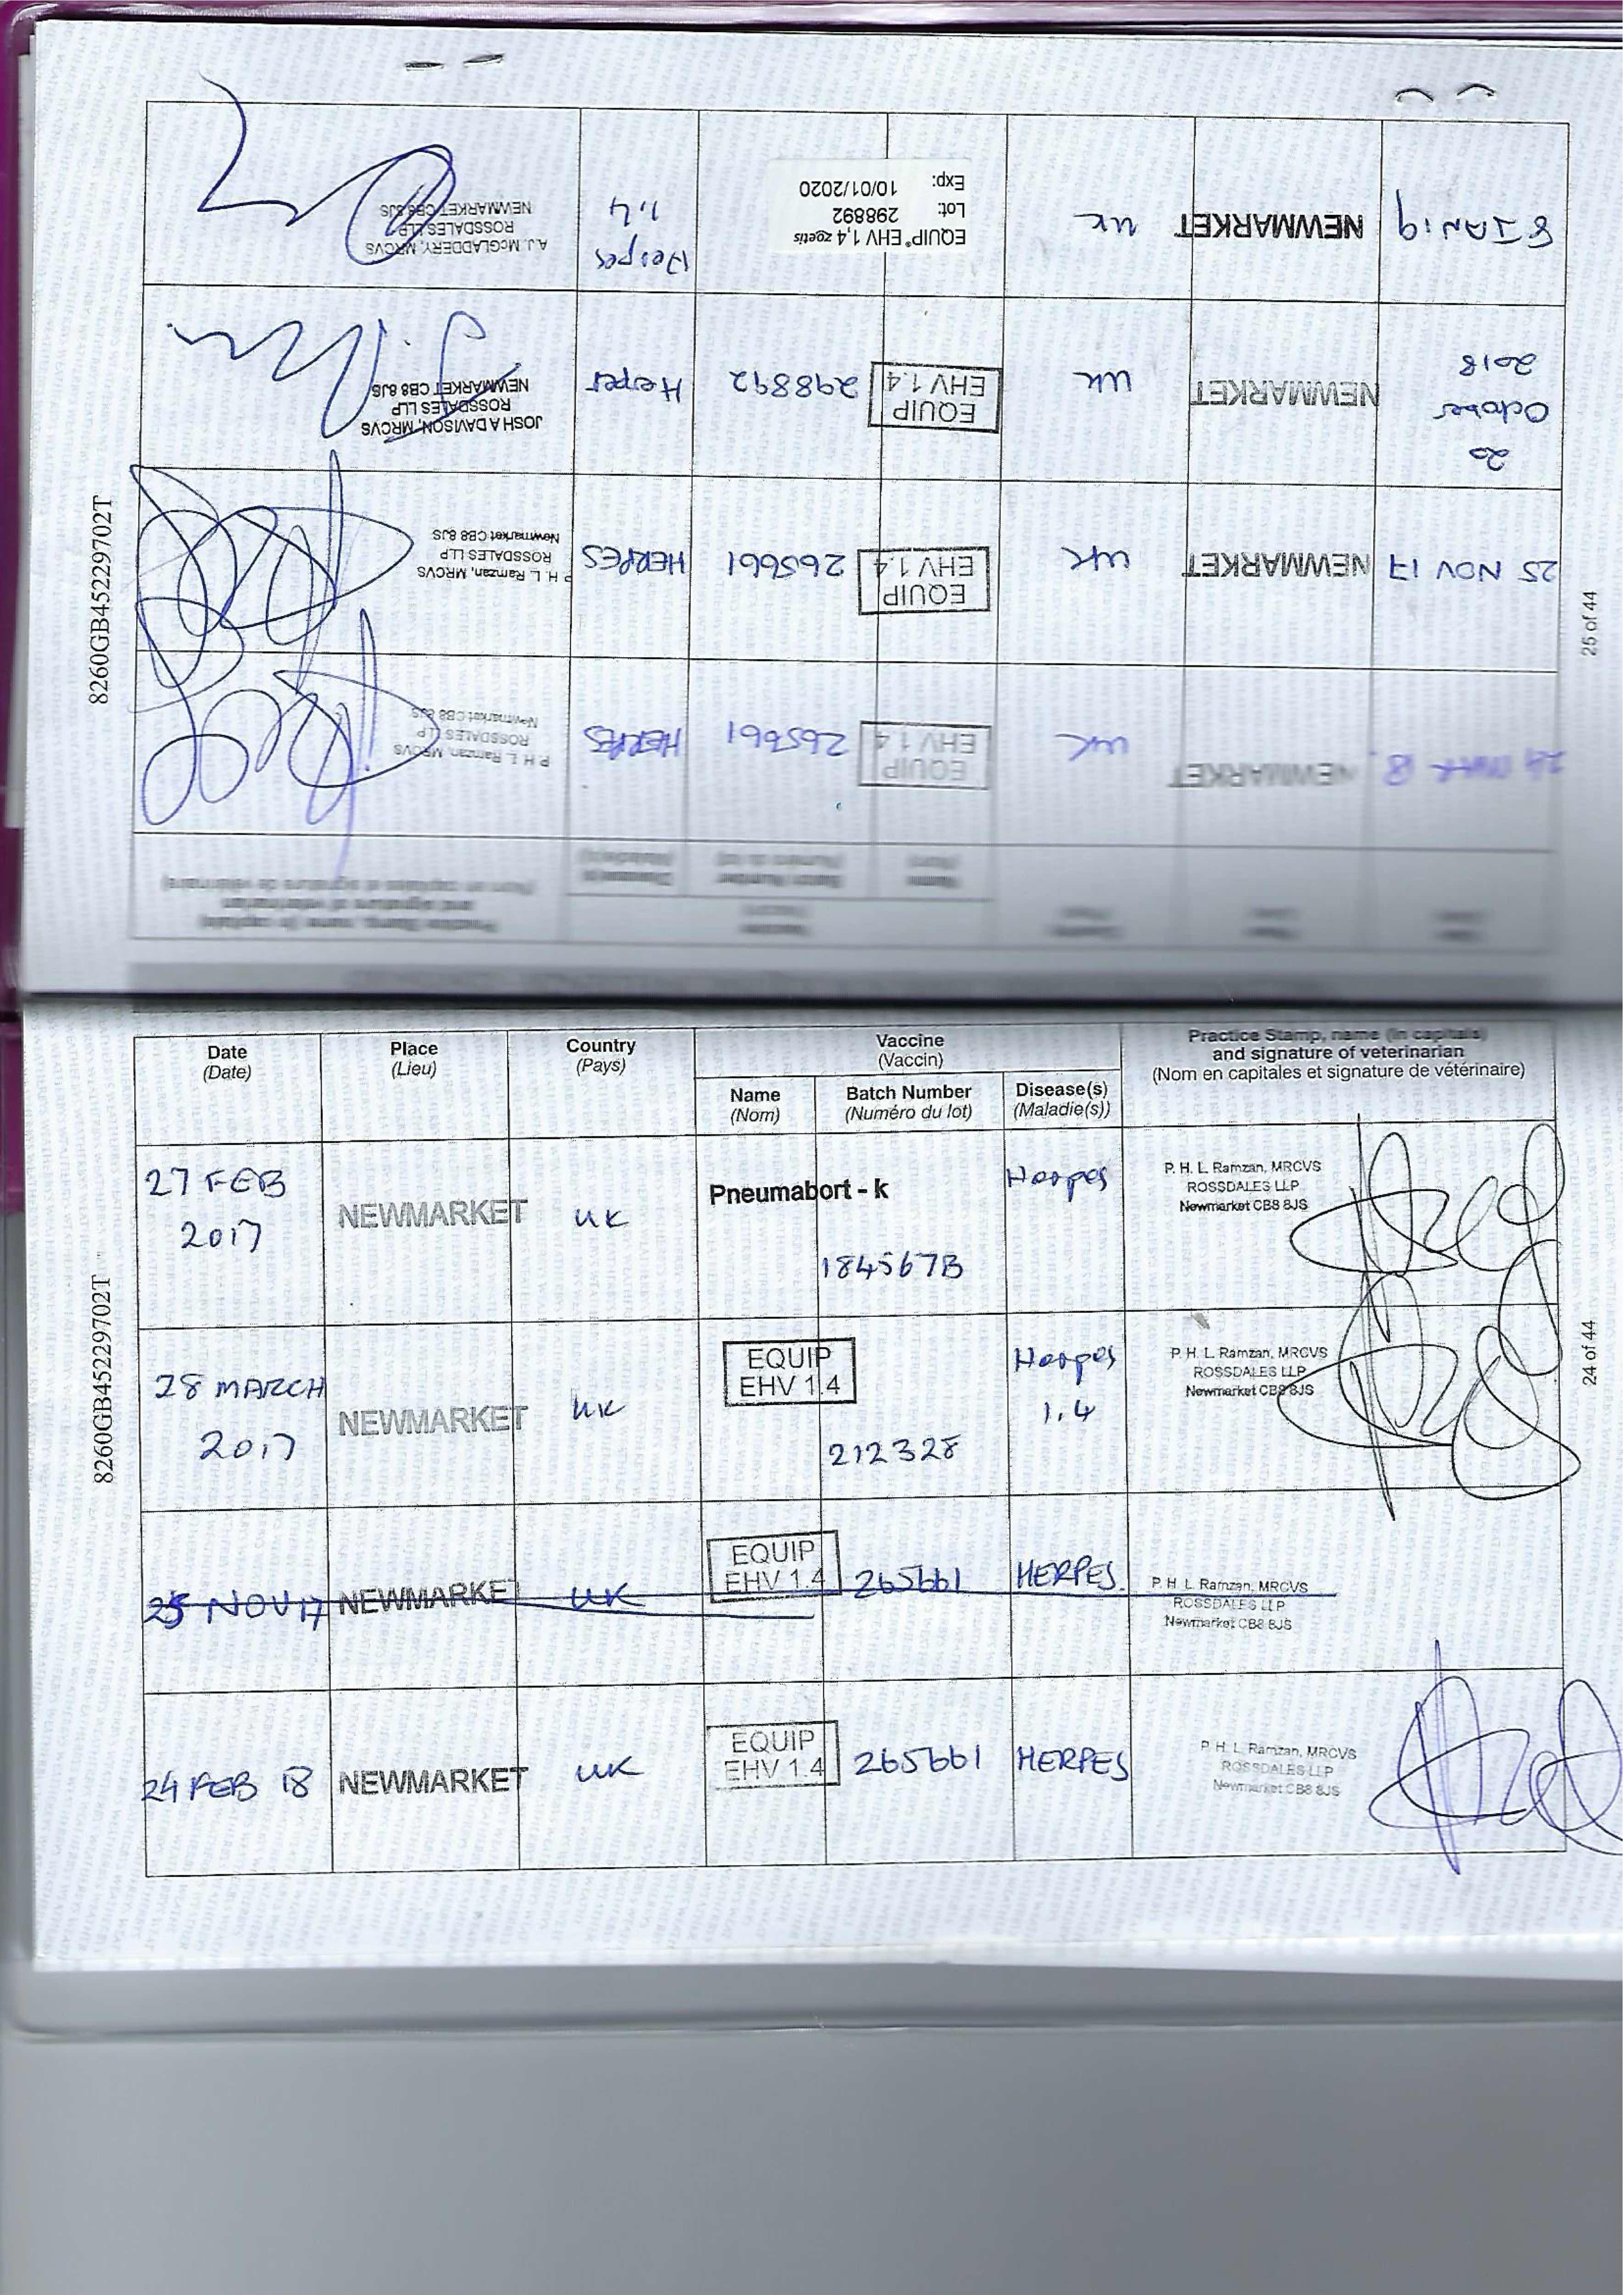 8260GB45229702T
Date
(Date)
Place
(Lieu)
Country
(Pays)
Vaccine
(Vaccin)
Name
(Nom)
Batch Number
(Numéro du lot)
Disease(s)
(Maladie(s))
Practice Stamp, name (in capitals)
and signature of veterinarian
(Nom en capitales et signature de vétérinaire)
27 FEB
2017
NEWMARKET
UK
Pneumabort - k
184567B
Herpes
P. H. L. Ramzan, MRCVS
ROSSDALES LLP
Newmarket CB8 8JS
28 MARCH
2017
NEWMARKET
UK
EQUIP
EHV 1.4
212328
Herpes
1.4
P. H. L. Ramzan, MRCVS
ROSSDALES LLP
Newmarket CB8 8JS
25 NOV 17
NEWMARKE
UK
EQUIP
EHV 1.4
265661
HERPES
P H L Ramzan, MRCVS
ROSSDALES LLP
Newmarket CB8 8JS
24 FEB 18
NEWMARKET
UK
EQUIP
EHV 1.4
265661
HERPES
P H L Ramzan, MRCVS
ROSSDALES LLP
Newmarket CB8 8JS
24 of 44
8260GB45229702T
Practice Stamp, name (in capitals)
and signature of veterinarian
(Nom en capitales et signature de vétérinaire)
NEWMARKET
UK
EQUIP
EHV 1.4
265661
HERPES
P H L Ramzan, MRCVS
ROSSDALES LLP
Newmarket CB8 8JS
25 NOV 17
NEWMARKET
UK
EQUIP
EHV 1.4
265661
HERPES
P H. L Ramzan, MRCVS
ROSSDALES LLP
Newmarket CB8 8JS
20
October
2018
NEWMARKET
UK
EQUIP
EHV 1.4
298892
Herpes
JOSH A DAVISON, MRCVS
ROSSDALES LLP
NEWMARKET CB8 8JS
8 JAN 19
NEWMARKET
UK
EQUIP® EHV 1,4 zoetis
Lot: 298892
Exp: 10/01/2020
Herpes
1.4
A.J. McGLADDERY, MRCVS
ROSSDALES LLP
NEWMARKET CB8 8JS
25 of 44